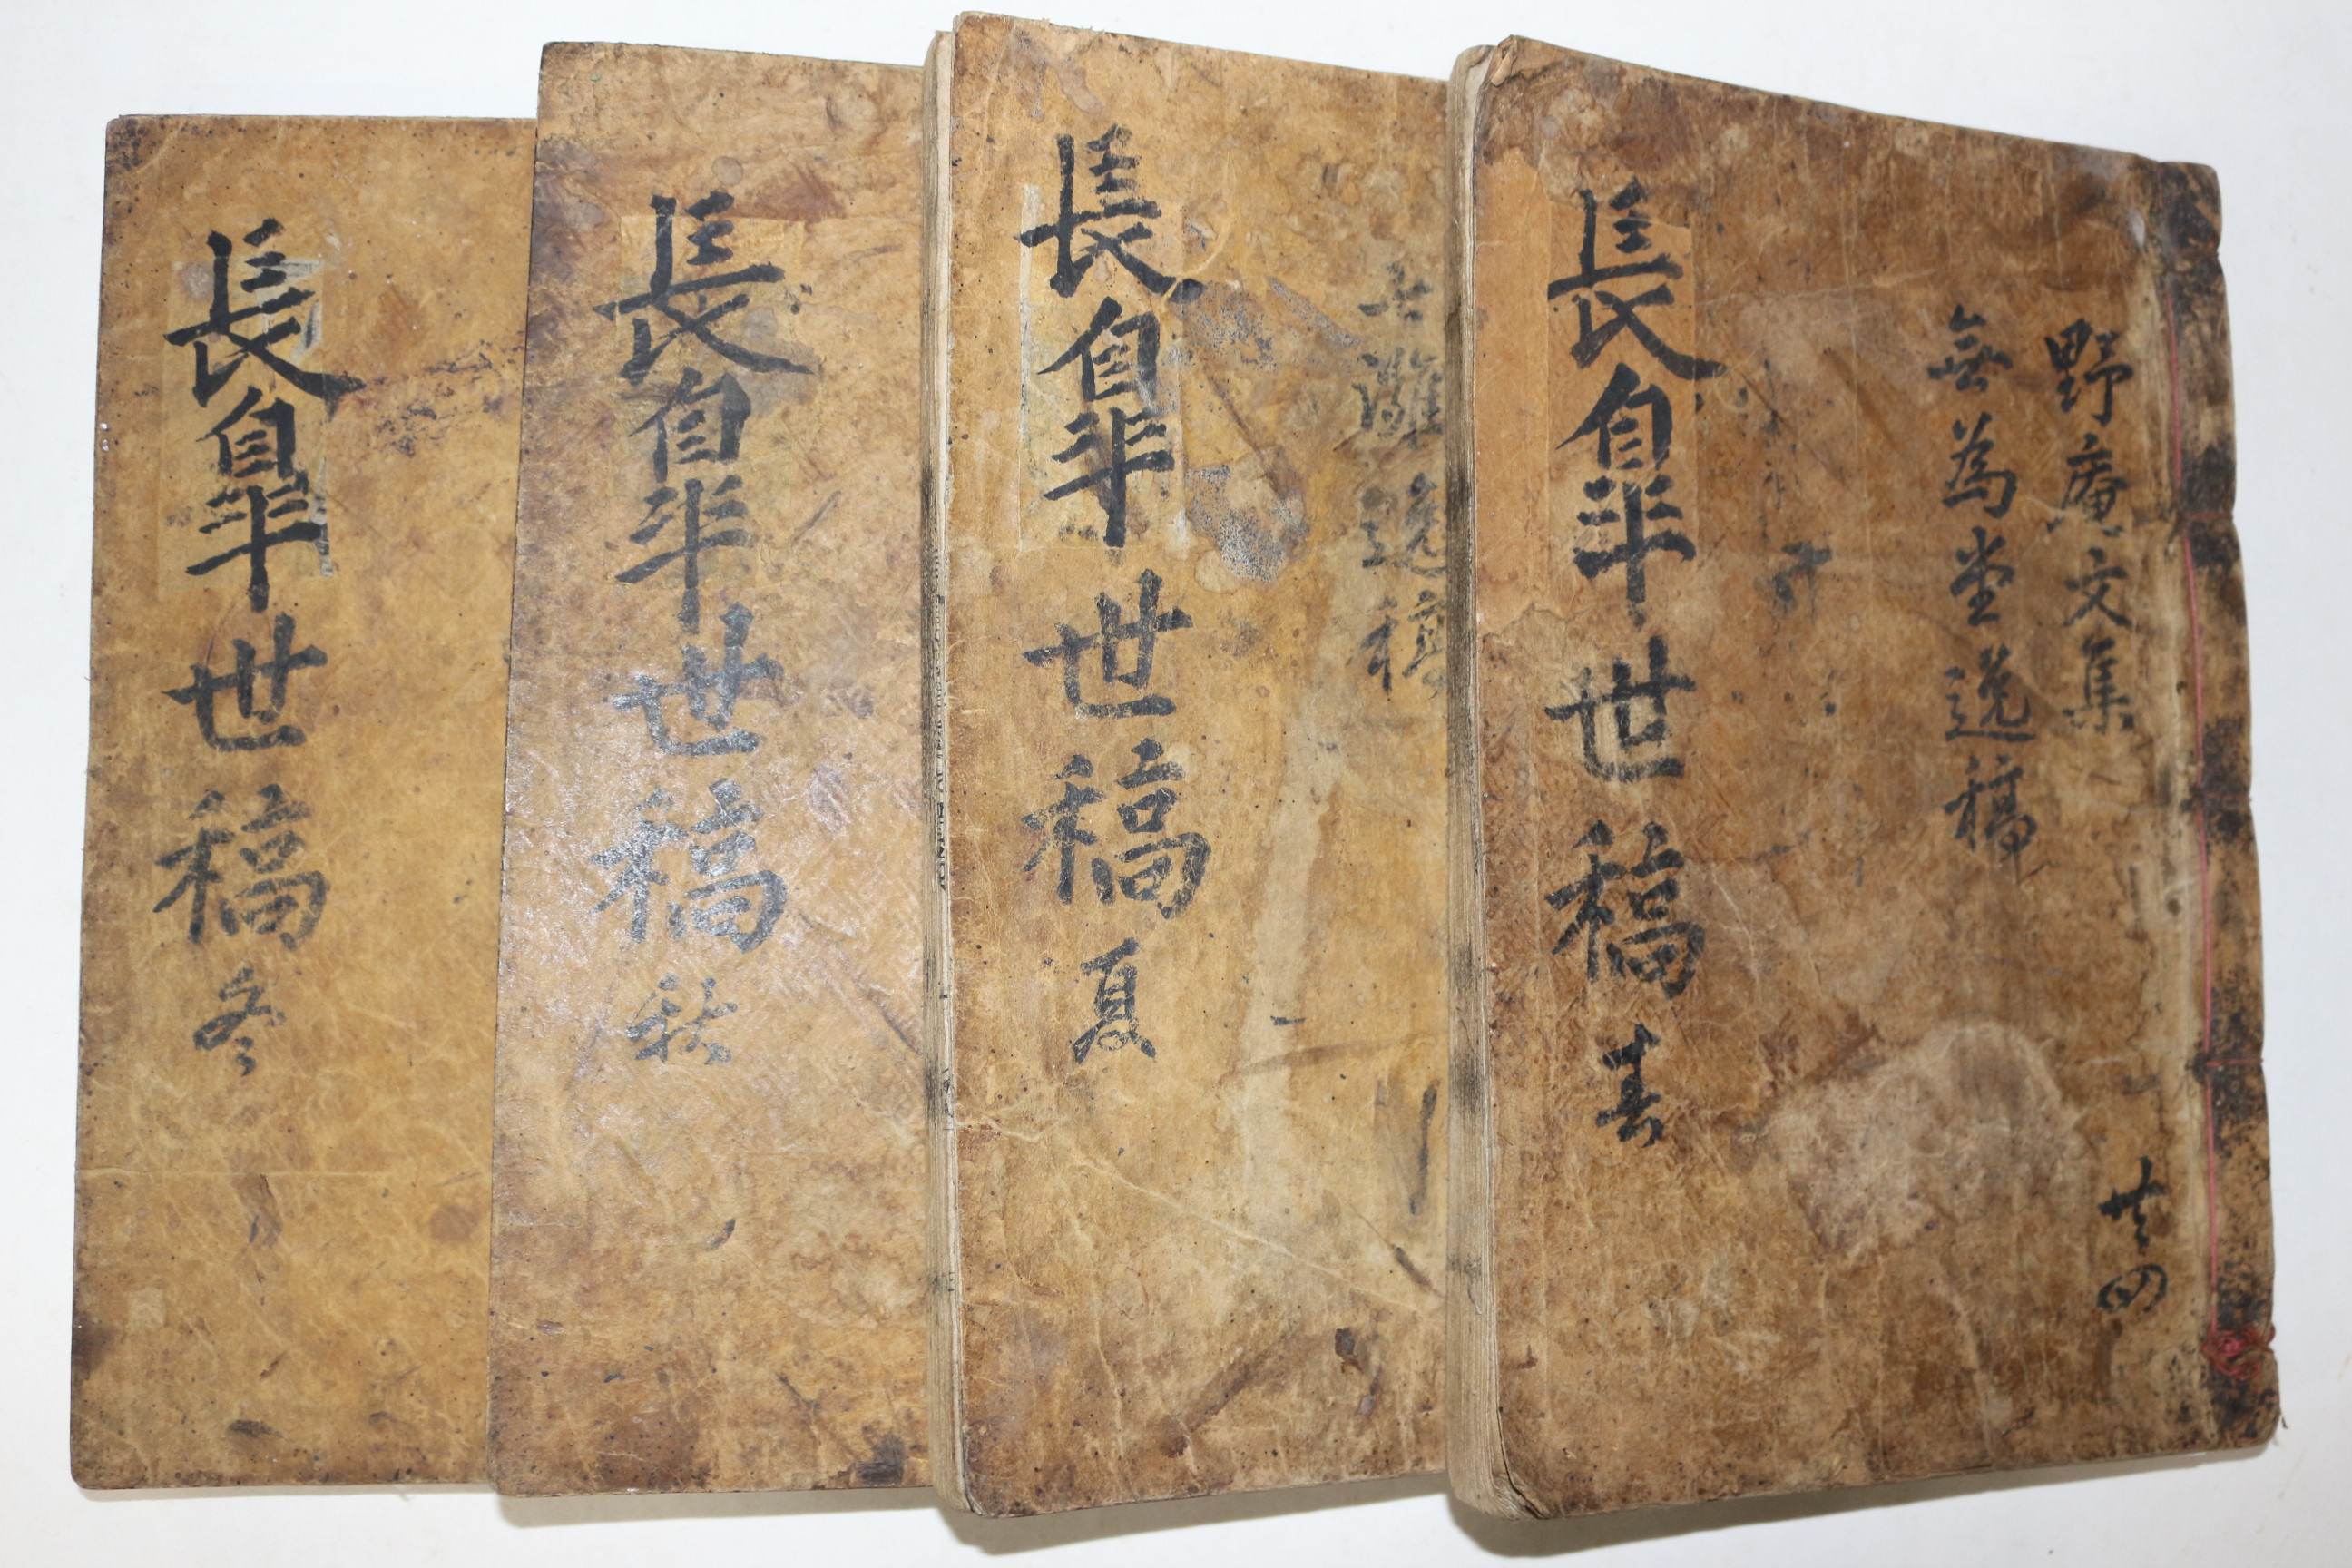 野庵文集
共四
無為堂逸稿
長皐世稿 春
逸稿
長皐世稿 夏
長皐世稿 秋
長皐世稿 冬